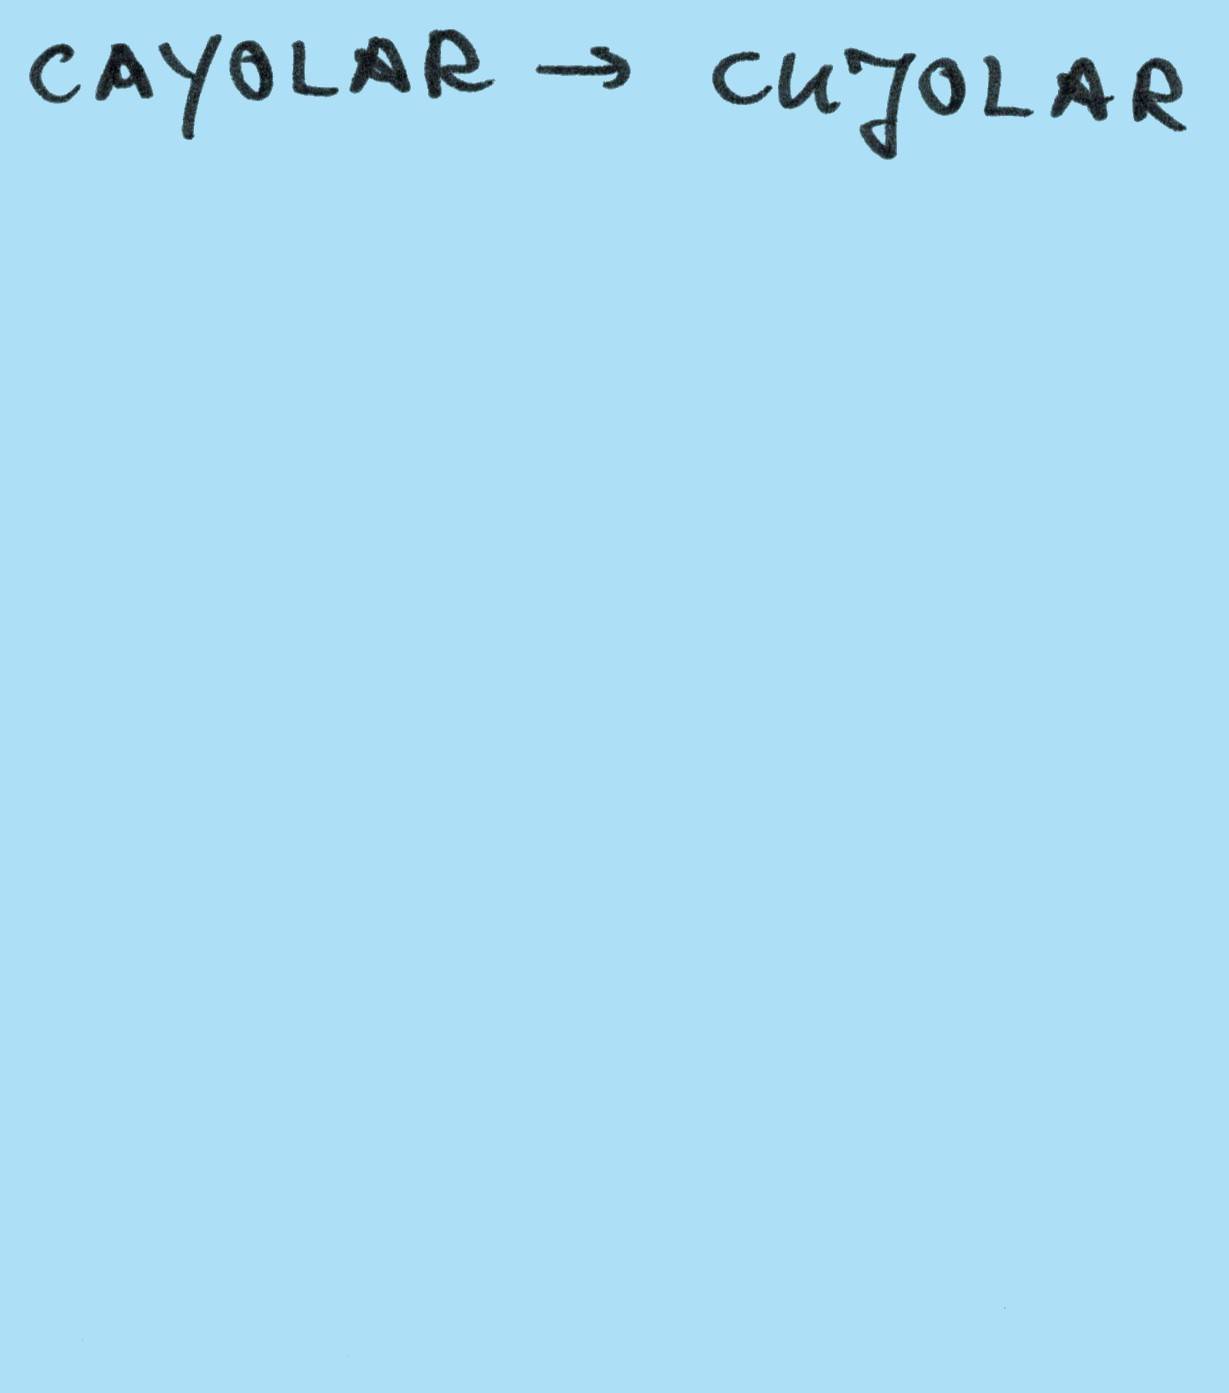 CAYOLAR → CUJOLAR